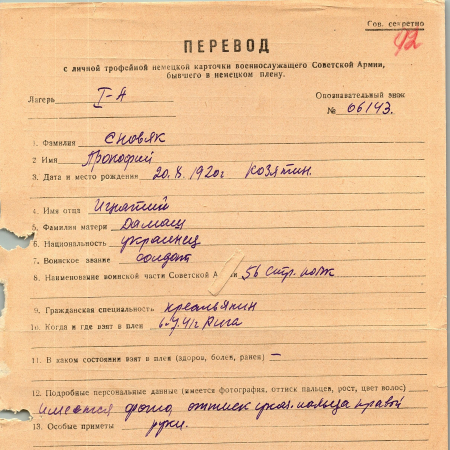 Сов. секретно
42
ПЕРЕВОД
с личной трофейной немецкой карточки военнослужащего Советской Армии,
бывшего в немецком плену.
Лагерь I-А
Опознавательный знак
№ 06143.
1. Фамилия Сновяк
2 Имя Прокофий
3. Дата и место рождения 20.X.1920г Козятин.
4. Имя отца Игнатий
5. Фамилия матери Дамащ
6. Национальность украинец
7. Воинское звание солдат
8. Наименование воинской части Советской Армии 56 стр. полк
9. Гражданская специальность крестьянин
10. Когда и где взят в плен 6.7.41г Рига
11. В каком состоянии взят в плен (здоров, болен, ранен) —
12. Подробные персональные данные (имеется фотография, оттиск пальцев, рост, цвет волос)
имеется фото, оттиск указ. пальца правой
13. Особые приметы руки.